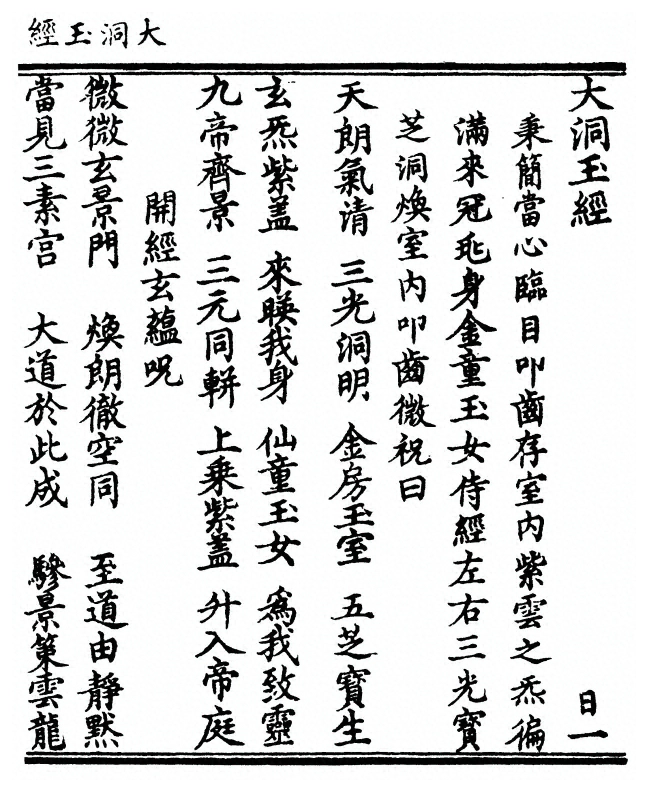 大洞玉經
大洞玉經　日一
秉簡當心臨目叩齒存室内紫雲之炁徧
滿來冠兆身金童玉女侍經左右三光寳
芝洞煥室内叩齒微祝曰
天朗氣清　三光洞明　金房玉室　五芝寳生
玄炁紫盖　來暎我身　仙童玉女　爲我致靈
九帝齊景　三元同軿　上乗紫盖　升入帝庭
開經玄蘊呪
微微玄景門　煥朗徹空同　至道由靜默
當見三素宫　大道於此成　驂景策雲龍